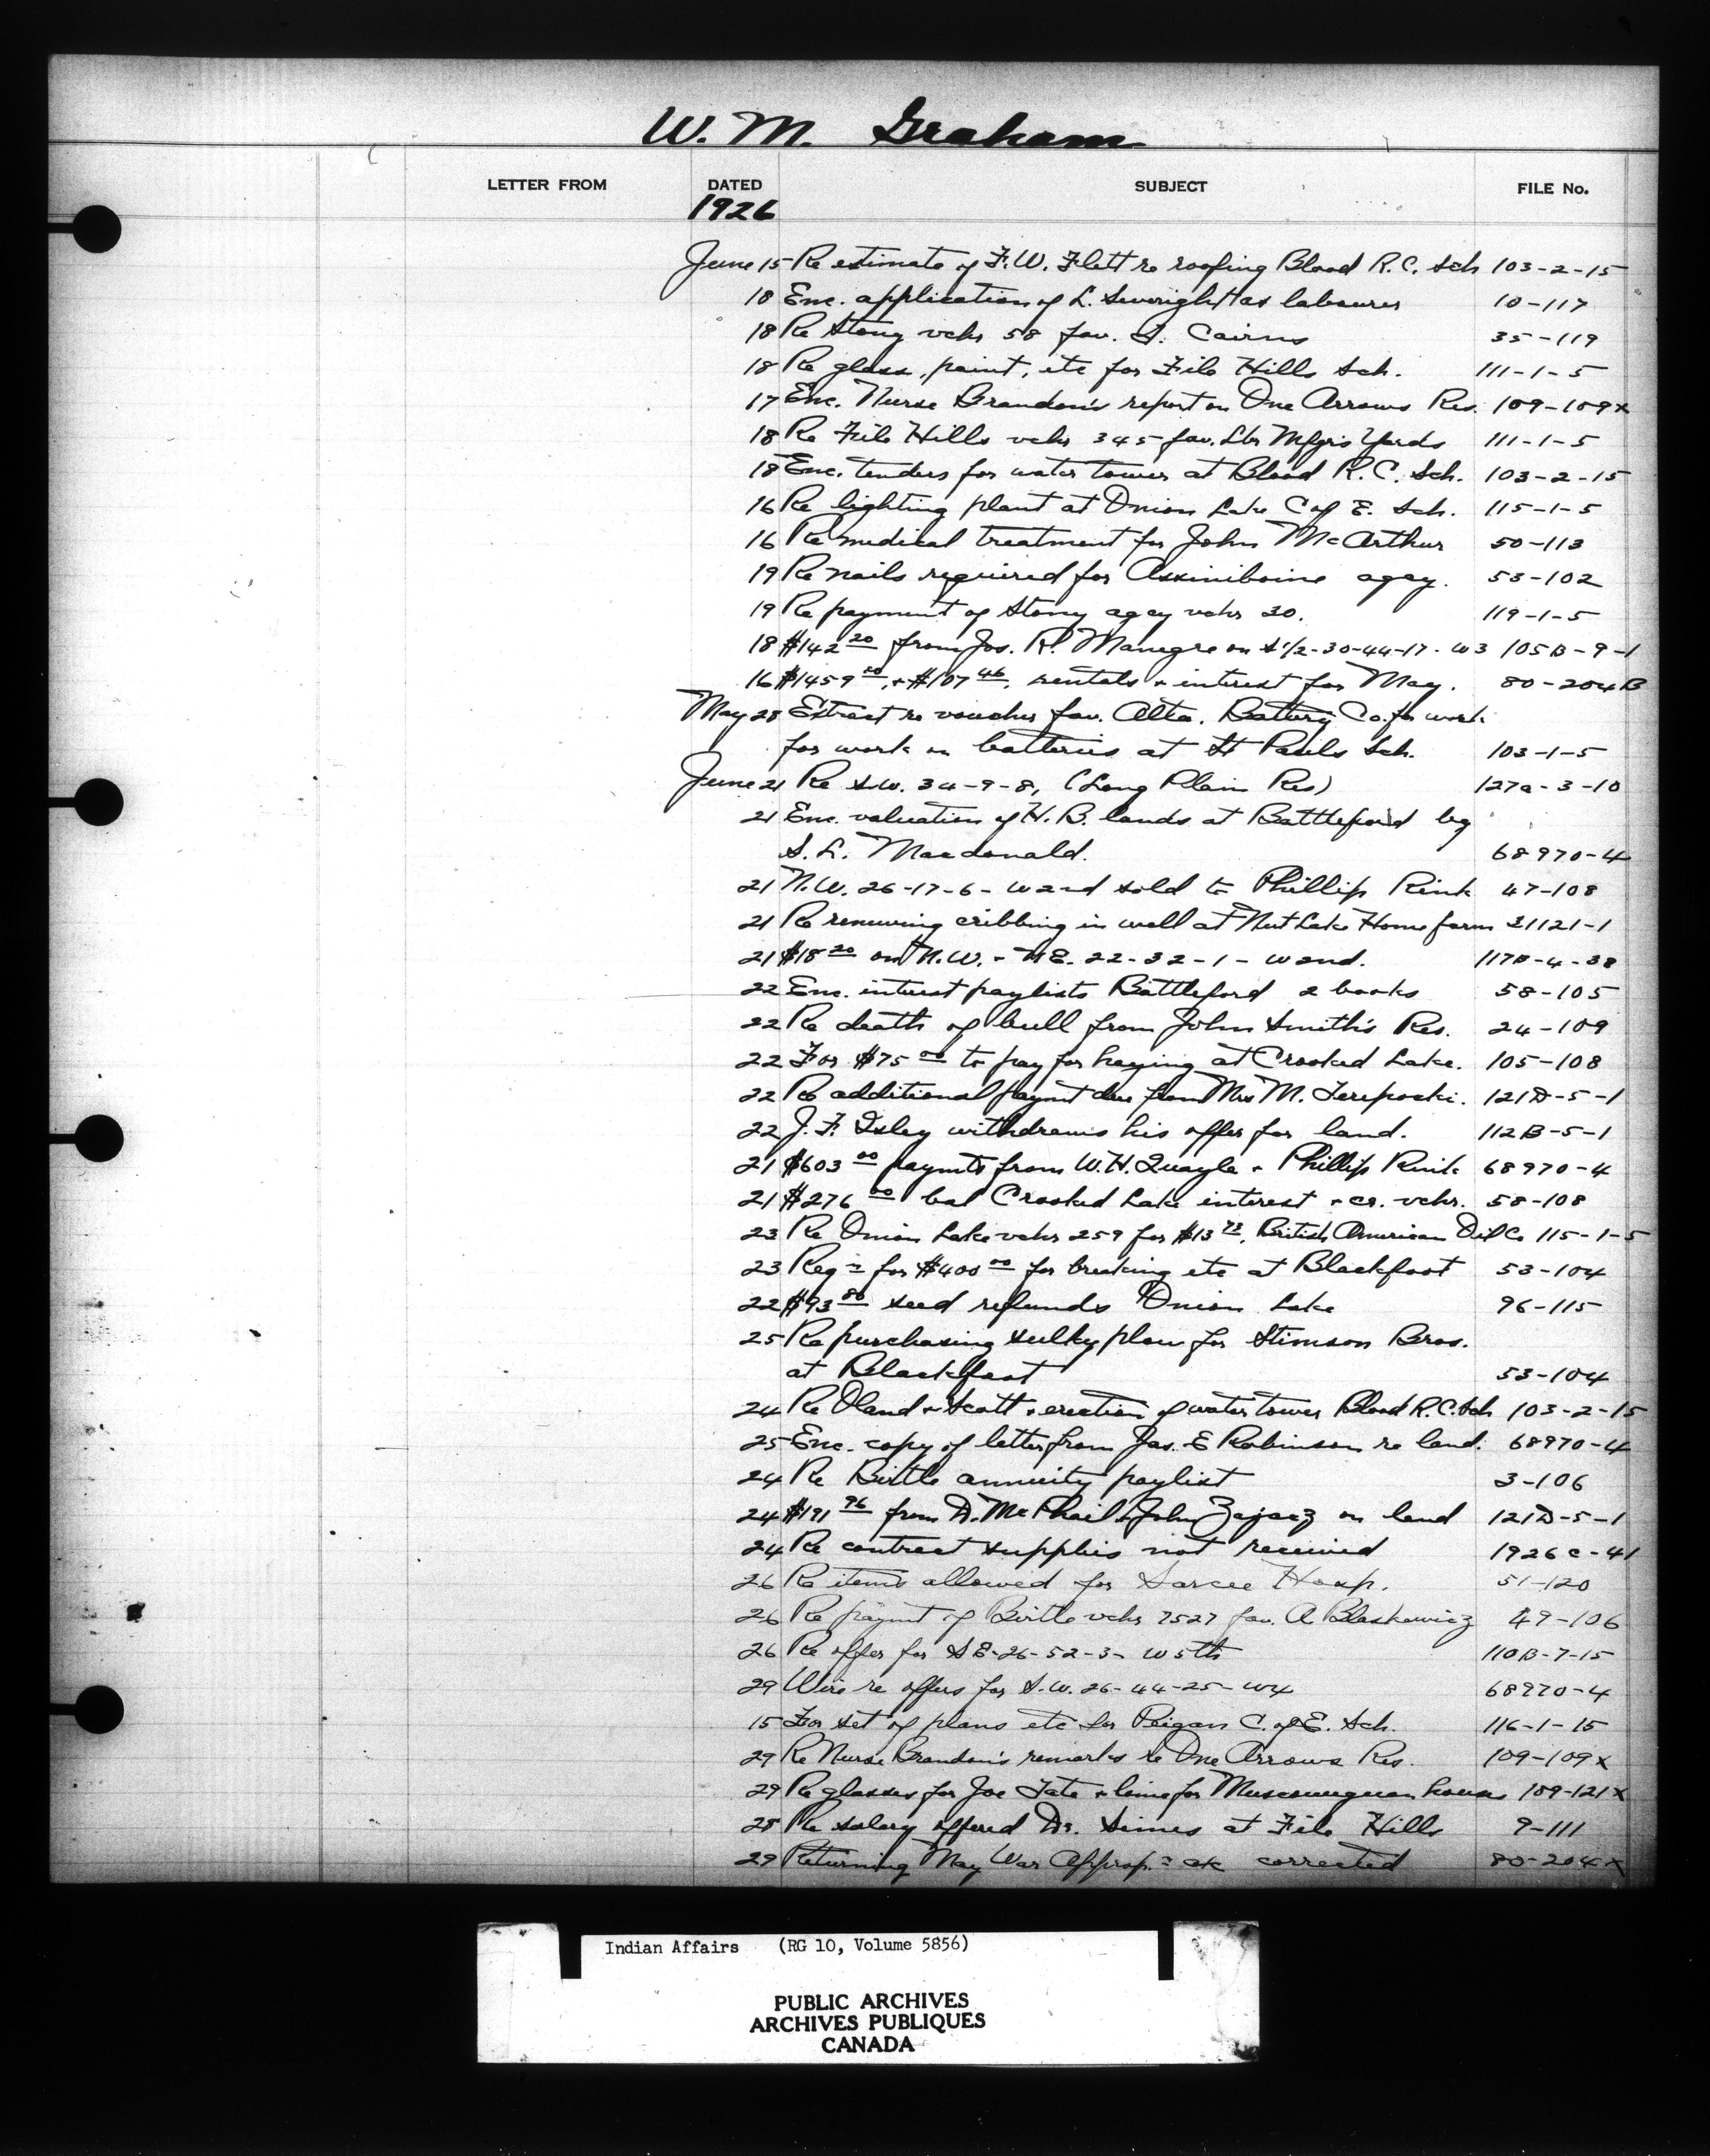 W. M. Graham
LETTER FROM DATED SUBJECT FILE No.
1926
June 15 Re estimate of F. W. Flett re roofing Blood R. C. Sch 103-2-15
18 Enc. application of L. Severight as labourer 10-117
18 Re Stony vchr 58 fav. J. Cairns 35-119
18 Re glass, paint, etc for File Hills Sch. 111-1-5
17 Enc. Nurse Brandon's report on One Arrows Res. 109-109x
18 Re File Hills vchr 345 fav. Lbr Mfgrs Yards 111-1-5
18 Enc. tenders for water tower at Blood R. C. Sch. 103-2-15
16 Re lighting plant at Onion Lake C of E. Sch. 115-1-5
16 Re medical treatment for John McArthur 50-113
19 Re nails required for Assiniboine agcy. 53-102
19 Re payment of Stony agcy vchr 30. 119-1-5
18 $142 20 from Jos. R. Manegre on S 1/2-30-44-17-W3 105B-9-1
16 $1459 + $107 46, rentals + interest for May. 80-204B
May 28 Extract re voucher fav. Alta. Battery Co. for work
for work on batteries at St Pauls Sch. 103-1-5
June 21 Re S.W. 34-9-8, (Long Plain Res) 127a-3-10
21 Enc. valuation of H. B. lands at Battleford by
S. L. Macdonald. 68970-4
21 N.W. 26-17-6-W2nd sold to Phillip Rink 47-108
21 Re renewing cribbing in well at Nut Lake Home farm 31121-1
21 $18 20 on N.W. - NE. 22-32-1-W2nd. 117B-4-38
22 Enc. interest paylists Battleford 2 books 58-105
22 Re death of bull from John Smith's Res. 24-109
22 For $75 00 to pay for haying at Crooked Lake. 105-108
22 Re additional paymt due from Mrs M. Tereposki. 121D-5-1
22 J. F. Isley withdraws his offer for land. 112B-5-1
21 $603 00 paymts from W. H. Quayle + Phillip Rink 68970-4
21 $276 00 bal Crooked Lake interest + cr. vchr. 58-108
23 Re Onion Lake vchr 259 for $13 75, British American Oil Co 115-1-5
23 Reqn for $400 00 for breaking etc at Blackfoot 53-104
22 $93 80 seed refunds Onion Lake 96-115
25 Re purchasing sulky plow for Stimson Bros.
at Blackfoot 53-104
24 Re Oland + Scott + erection of water tower Blood R. C. Sch 103-2-15
25 Enc. copy of letter from Jas. E Robinson re land. 68970-4
24 Re Birtle annuity paylist 3-106
24 $191 96 from D. McPhail + John Zajacz on land 121D-5-1
24 Re contract supplies not received 1926c-41
26 Re items allowed for Sarcee Hosp. 51-120
26 Re paymt of Birtle vchr 7527 fav. A Blaskewicz 49-106
26 Re offer for SE-26-52-3-W5th 110B-7-15
29 Wire re offers for S.W. 26-44-25-W4 68970-4
15 For set of plans etc for Peigan C. of E. Sch. 116-1-15
29 Re Nurse Brandon's remarks re One Arrows Res. 109-109x
29 Re glasses for Joe Tate + lime for Muscowequan houses 109-121x
28 Re salary offered Dr. Simes at File Hills 9-111
29 Returning May War Approp. a/c corrected 80-204x
Indian Affairs (RG 10, Volume 5856)
PUBLIC ARCHIVES
ARCHIVES PUBLIQUES
CANADA